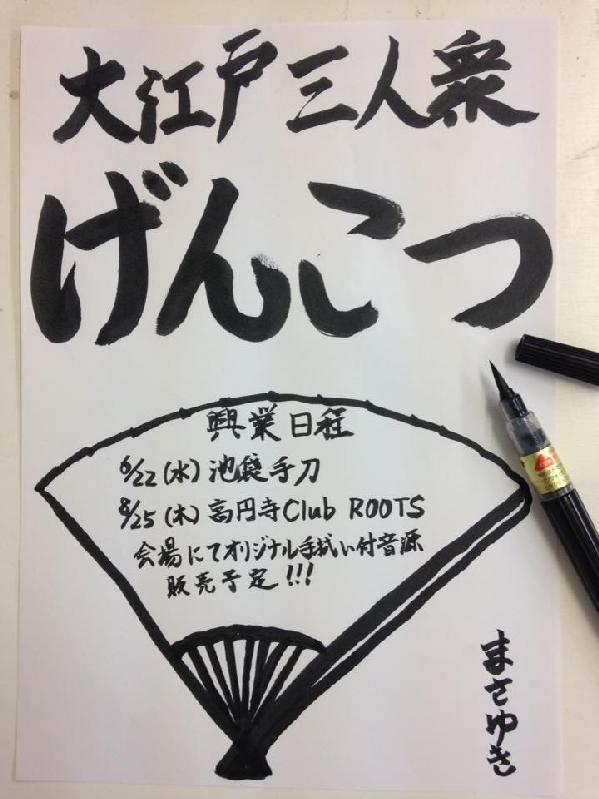 大江戸三人衆
げんこつ
興業日程
6/22(水)池袋手刀
8/25(木)高円寺Club ROOTS
会場にてオリジナル手拭い付音源
販売予定!!!
まさゆき